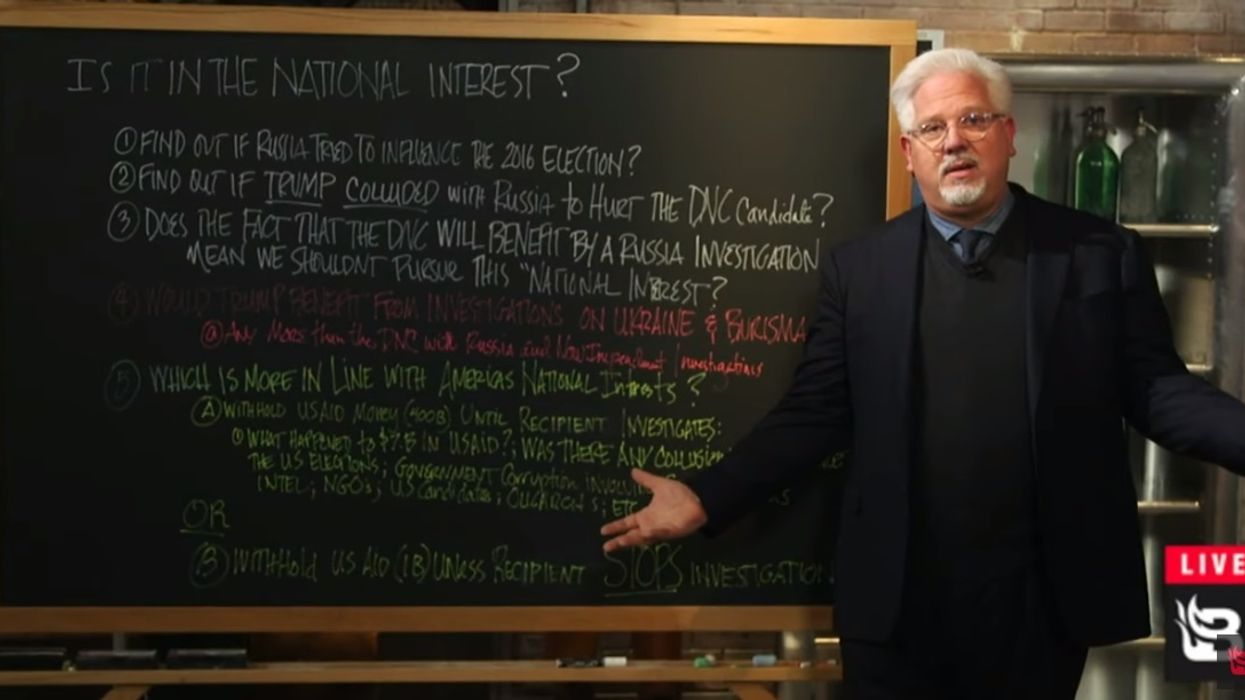 IS IT IN THE NATIONAL INTEREST?
① FIND OUT IF RUSSIA TRIED TO INFLUENCE THE 2016 ELECTION?
② FIND OUT IF TRUMP COLLUDED WITH RUSSIA TO HURT THE DNC Candidate?
③ DOES THE FACT THAT THE DNC WILL BENEFIT BY A RUSSIA INVESTIGATION
MEAN WE SHOULDNT PURSUE THIS "NATIONAL INTEREST?
④ WOULD TRUMP BENEFIT FROM INVESTIGATIONS ON UKRAINE & BURISMA
ⓐ Any More than the DNC with Russia and Now Independent Investigations
⑤ WHICH IS MORE IN LINE WITH AMERICAS NATIONAL Intrests?
Ⓐ WITHHOLD US AID MONEY UNTIL RECIPIENT INVESTIGATES:
① WHAT HAPPENED to IN US AID?; WAS THERE ANY COLLUSION
THE US ELECTIONS; GOVERNMENT Corruption
INTEL; NGO's; US Candidates; OLIGARCH'S; ETC
OR
Ⓑ WITHHOLD US AID (1B) UNLESS RECIPIENT STOPS INVESTIGATION
LIVE